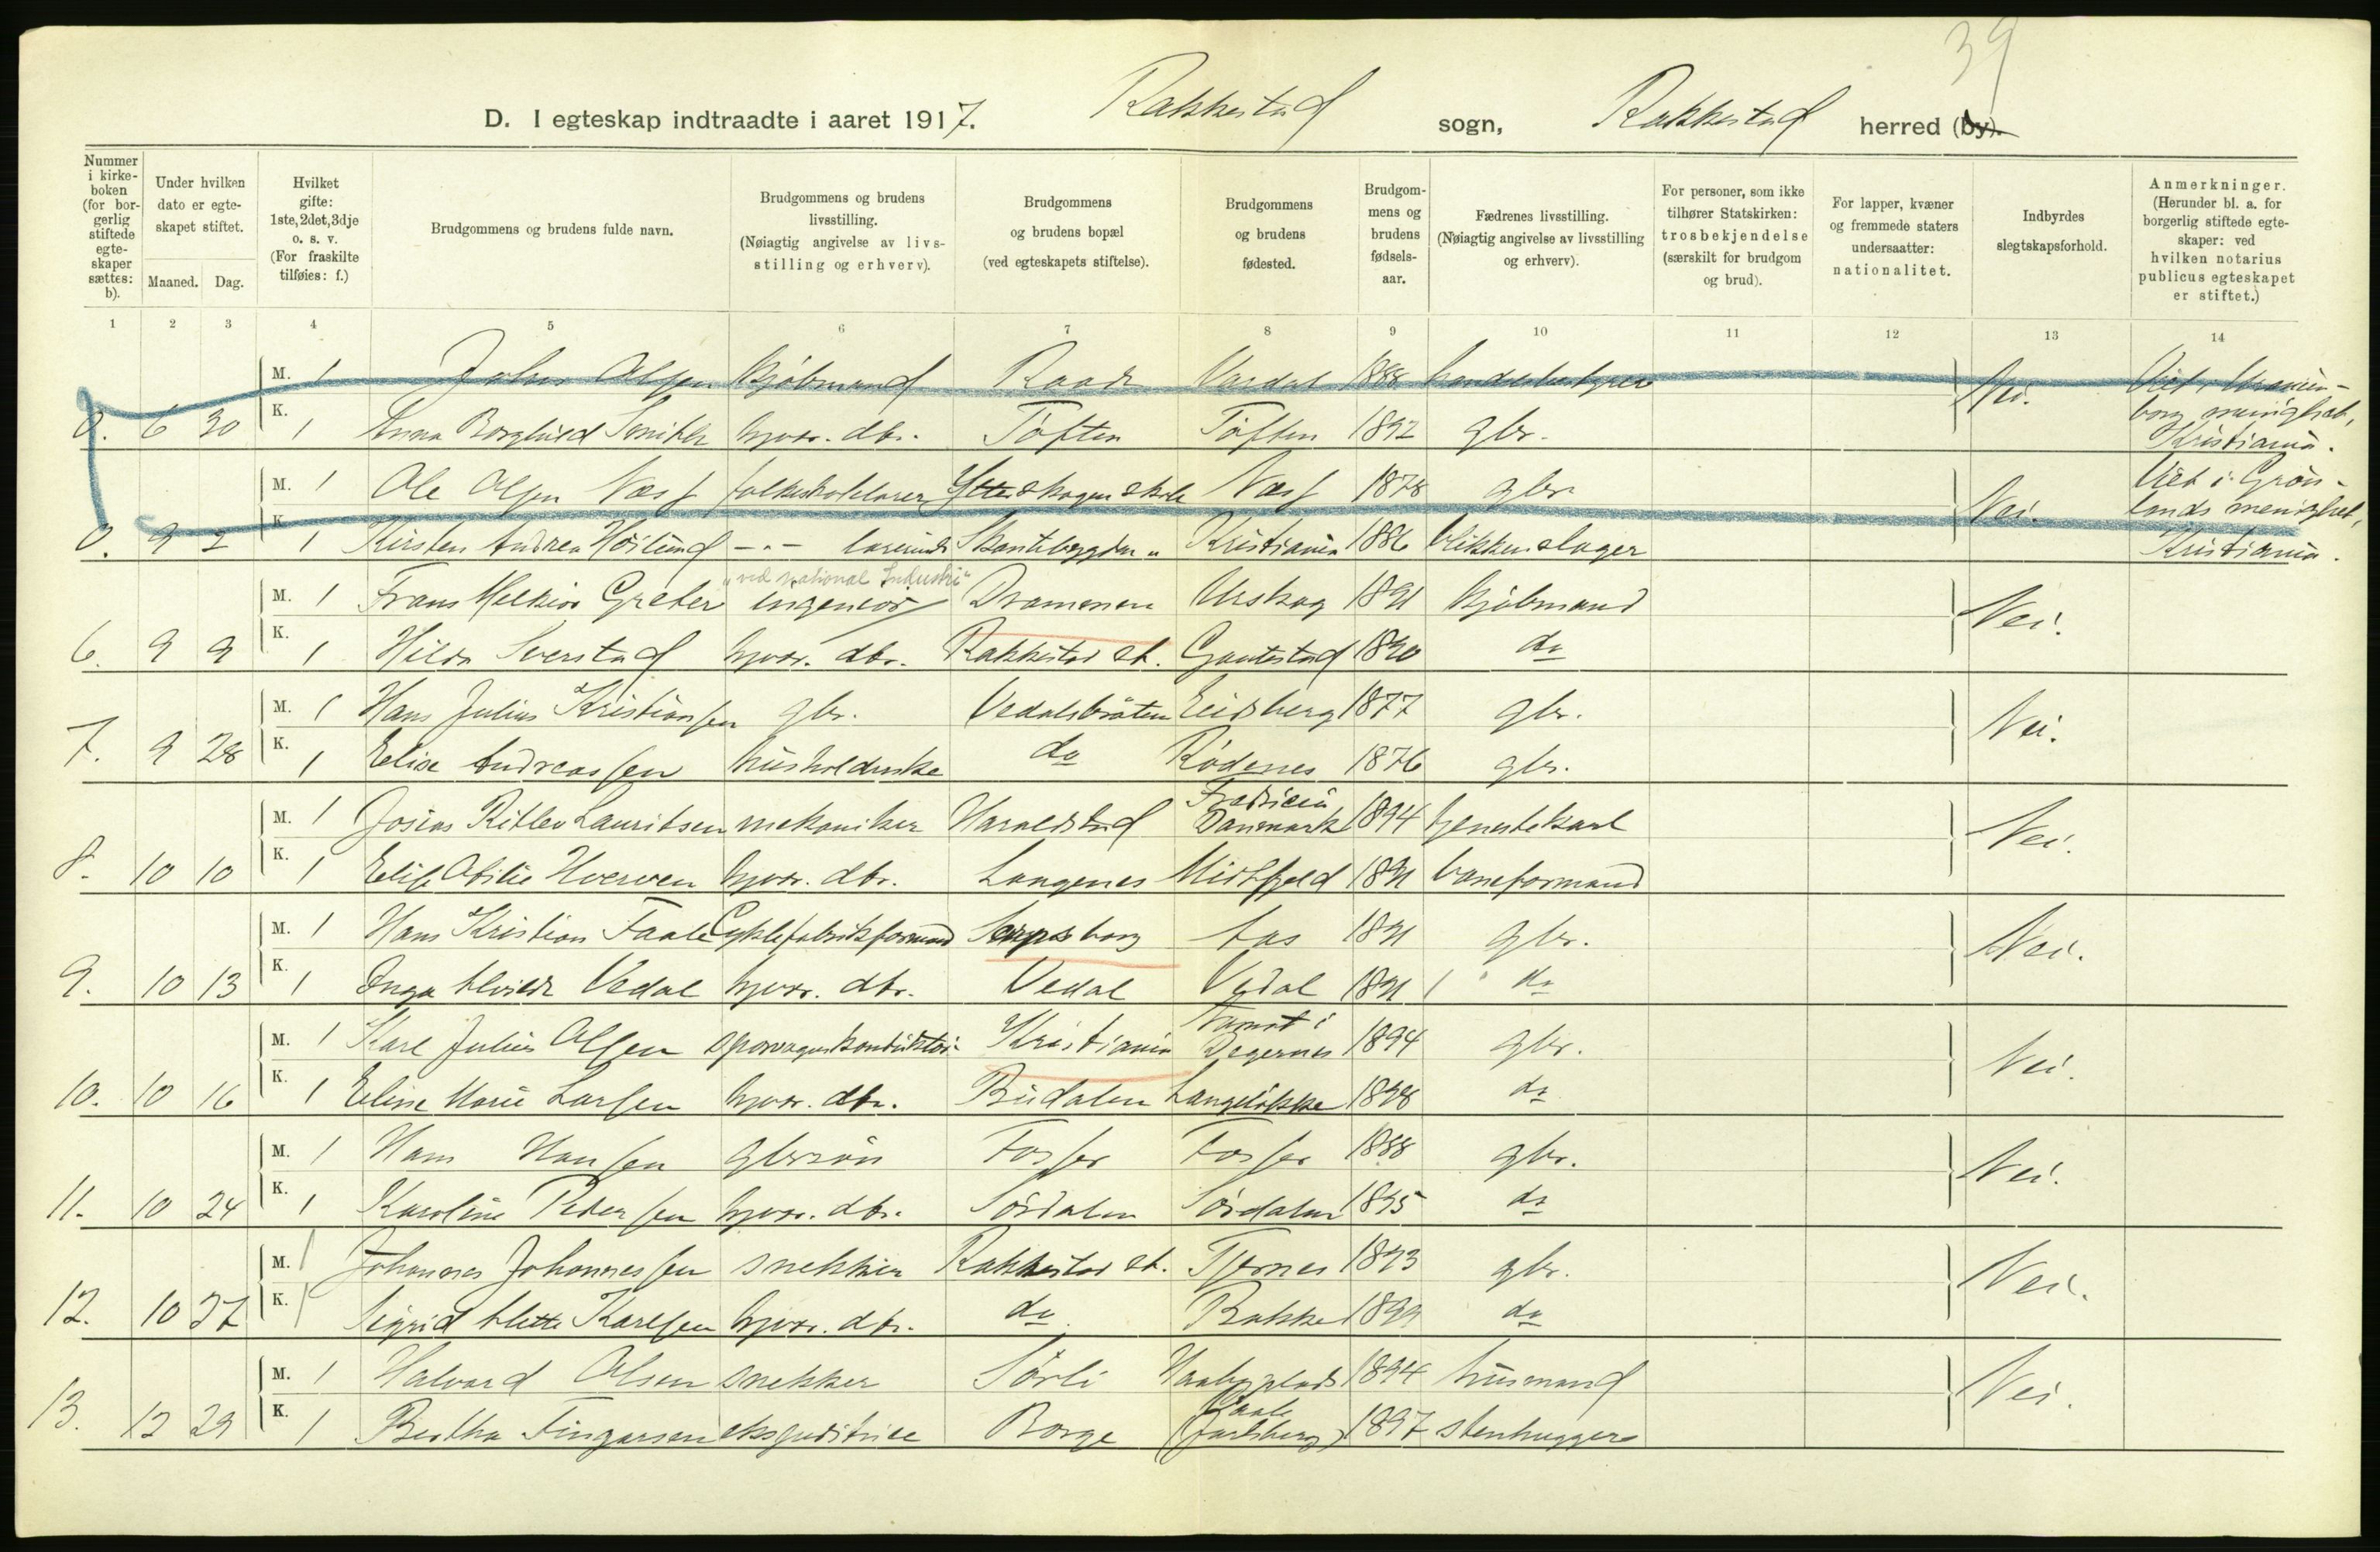 39
D. I egteskap indtraadte i aaret 1917. Rakkestad sogn, Rakkestad herred (by).
Nummer i kirke-boken (for bor-gerlig stiftede egte-skaper sættes: b).
Under hvilken dato er egte-skapet stiftet.
Maaned. Dag.
Hvilket gifte: 1ste, 2det, 3dje o. s. v. (For fraskilte tilføies: f.)
Brudgommens og brudens fulde navn.
Brudgommens og brudens livsstilling. (Nøiagtig angivelse av livs-stilling og erhverv).
Brudgommens og brudens bopæl (ved egteskapets stiftelse).
Brudgommens og brudens fødested.
Brudgom-mens og brudens fødsels-aar.
Fædrenes livsstilling. (Nøiagtig angivelse av livsstilling og erhverv).
For personer, som ikke tilhører Statskirken: trosbekjendelse (særskilt for brudgom og brud).
For lapper, kvæner og fremmede staters undersaatter: nationalitet.
Indbyrdes slegtskapsforhold.
Anmerkninger. (Herunder bl. a. for borgerlig stiftede egte-skaper: ved hvilken notarius publicus egteskapet er stiftet.)
1 2 3 4 5 6 7 8 9 10 11 12 13 14
M. 1 Johs Olsen kjøbmand Raade 1888 handelsbestyrer Nei. Viet i Uranien-
0. 6 30 K. 1 Anna Borghild hjvær. dtr. Toften Toften 1892 gbr. borg menighet,
Kristiania.
M. 1 Ole Olsen Næss folkeskolelærer Ytterskogen skole Næss 1878 gbr. Nei. Viet i Grøn-
lands menighet,
0. 9 2 K. 1 Kirsten Andrea Høilund -"- lærerinde Kristiania 1886 blikkenslager Kristiania.
"ved national Industri"
M. 1 Frans Melkior Greter ingeniør Drammen Urskog 1891 kjøbmand Nei.
6. 9 9 K. 1 Hilda Sverstad hjvær. dtr. Rakkestad st. Gautestad 1890 do
M. 1 Hans Julius Kristiansen gbr. Vedalsbråten Eidsberg 1877 gbr. Nei.
7. 9 28 K. 1 Elise Andreassen husholderske do Rødenes 1876 gbr.
M. 1 Josias Ritlev Lauritsen mekaniker Haraldstad Fredricia Danmark 1894 tjenestekarl Nei.
8. 10 10 K. 1 Elise Otilie Hverven hjvær. dtr. Langenes 1891 baneformand
M. 1 Hans Kristian Faale Cyklefabrikformand Sarpsborg Aas 1891 gbr. Nei.
9. 10 13 K. 1 Inga Alvilde Vedal hjvær. dtr. Vedal Vedal 1891 do
M. 1 Karl Julius Olsen sporvognskonduktør Kristiania i Degernes 1894 gbr. Nei.
10. 10 16 K. 1 Eline Marie Larsen hjvær. dtr. Budalen Langeløkke 1898 do
M. 1 Hans Hansen gbrsøn Fosser Fosser 1888 gbr. Nei.
11. 10 24 K. 1 Karoline Pedersen hjvær. dtr. Sørdalen Sørdalen 1895 do
M. 1 Johannes Johannessen snekker Rakkestad st. Tjernes 1893 gbr. Nei.
12. 10 27 K. 1 Sigrid Alette Karlsen hjvær. dtr. do Bakke 1899 do
M. 1 Halvard Olsen snekker Sørli 1894 husmand Nei.
13. 12 29 K. 1 Bertha Fingarsen ekspeditrice Borge (Jarlsberg) 1897 stenhugger